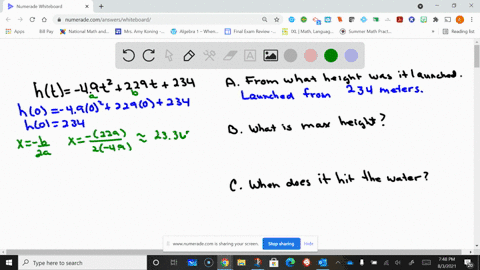 Numerade Whiteboard
numerade.com/answers/whiteboard/
Apps
National Math and...
Mrs. Amy Koning -...
Algebra 1 – When...
Final Exam Review -...
00. I, Math, Languag...
Summer Math Prac...
h(t) = -4.9t² + 229t + 234
a b
h(0) = -4.9(0)² + 229(0) + 234
h(0) = 234
x = -b/2a x = -(229)/2(-4.9) ≈ 23.36
A. From what height was it launched.
Launched from 234 meters.
B. What is max height?
C. When does it hit the water?
www.numerade.com is sharing your screen.
Stop sharing
Hide
Type here to search
7:46 PM
8/3/2021